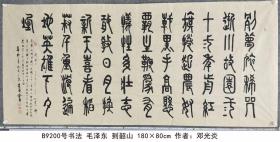 別夢依稀咒
逝川故園三
十二年前紅
旗卷起農奴
戟黑手高懸
霸主鞭為有
犧牲多壯志
敢教日月換
新天喜看稻
菽千重浪遍
地英雄下夕
煙
B9200号书法 毛泽东 到韶山 180×80cm 作者：邓光炎